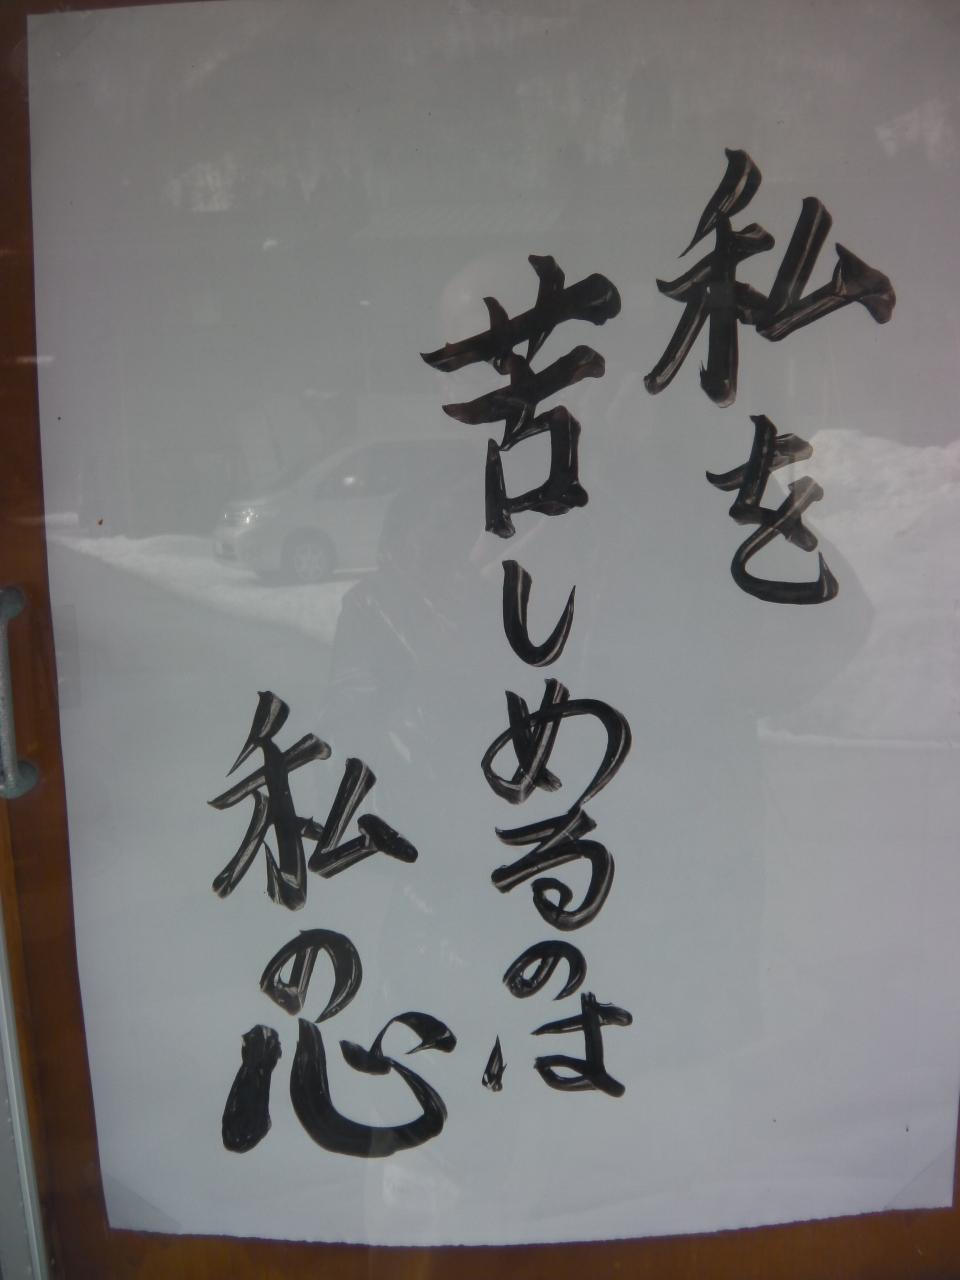 私を
苦しめるのは
私の心